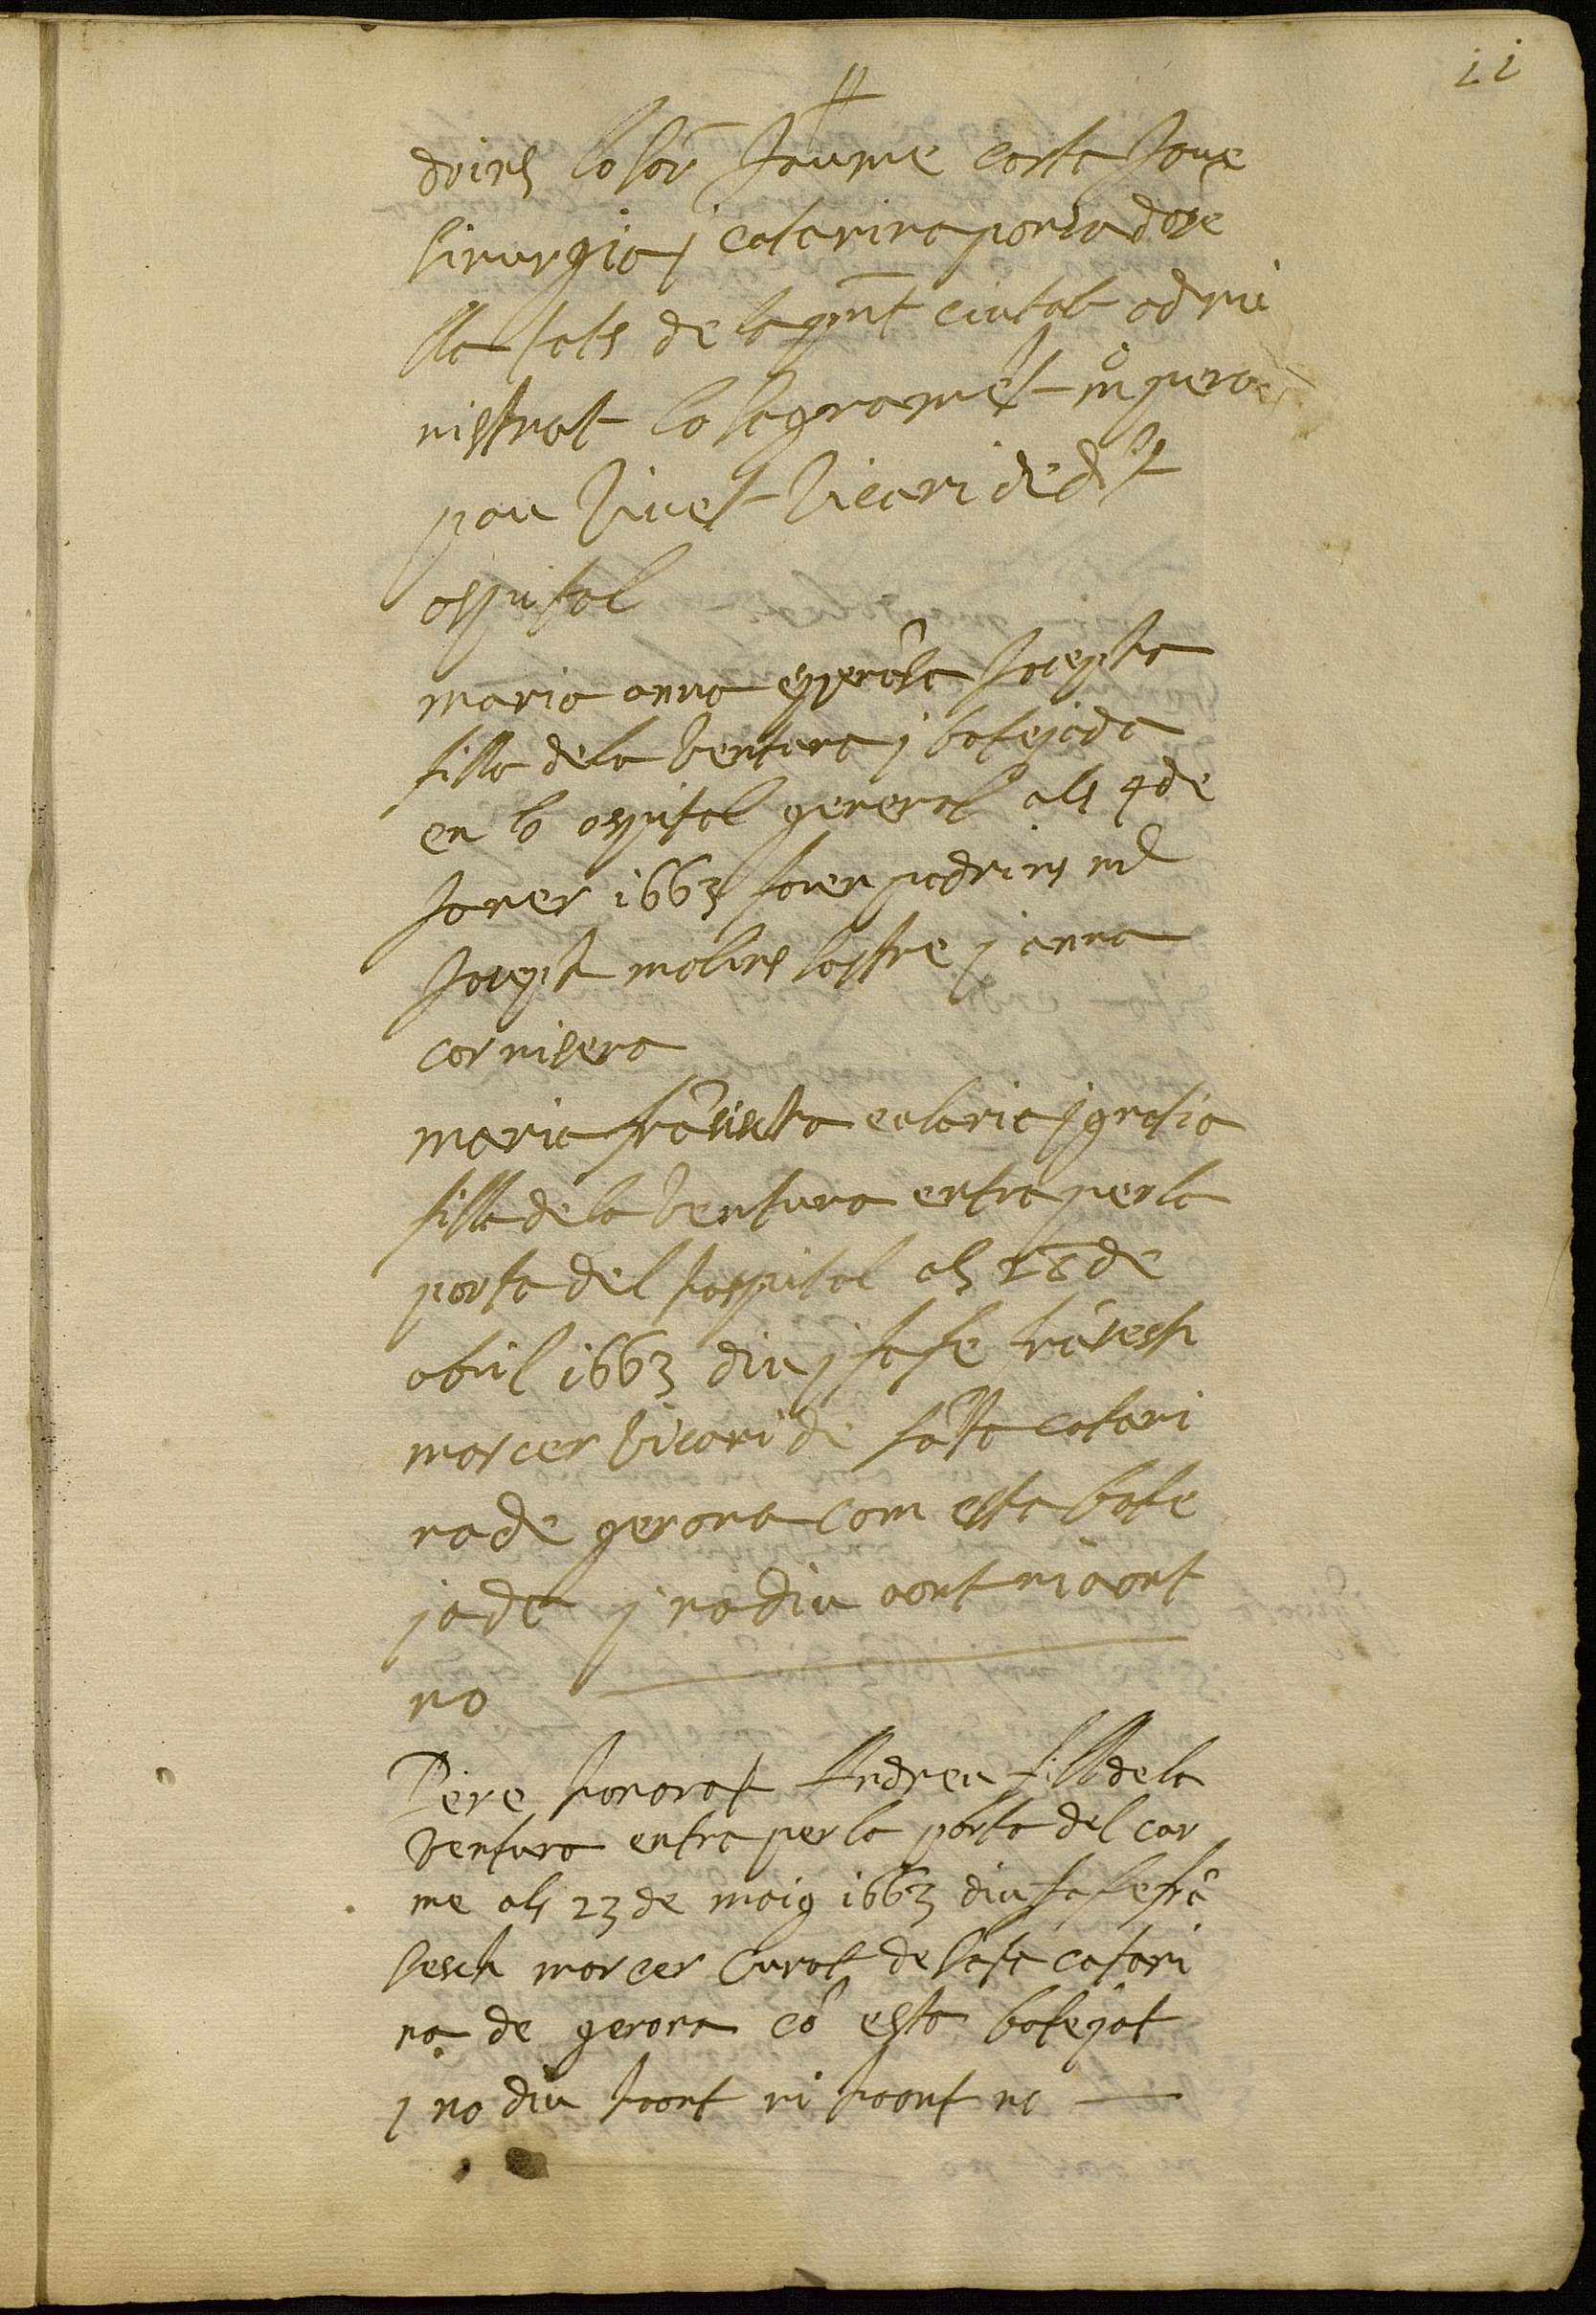 11
drins lo sor Jaume costa Jove
sirurgia j catarina porta dose
lla tots de la pnt ciutat admi
nistrat lo sagramet mº pera
pau vivet vicari de dit
ospital
maria anna esperasa Josepta
filla de la ventura j batejada
en lo ospital general als 4 de
Janer 1663 foren padrins
Josept molins sastre j anna
cornisera
maria fransischa eularia j grasia
filla de la ventura entra per la
porta del hospital als 18 de
abril 1663 diu j fa fe frãsesh
marcer vicari de sãta catari
na de gerona com esta bate
jada j no diu aont ni aont
no
Pere honorat Andreu fill de la
ventura entra per la porta del car
me als 23 de maig 1663 diu fa fe frã
sesch marcer curat de sata catari
na de gerona cõ esta batejat
j no diu haont ni haont no